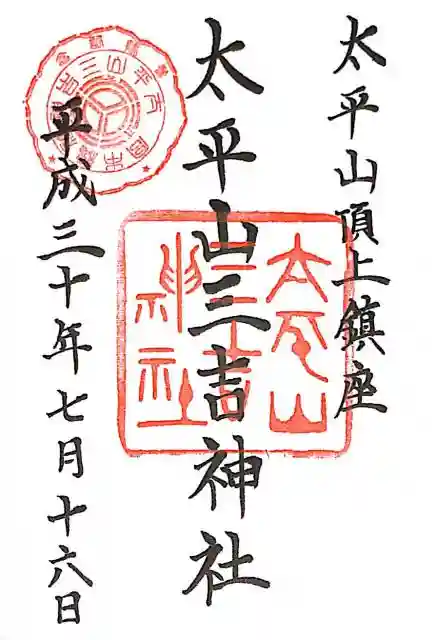 太平山頂上鎮座
太平山三吉神社
平成三十年七月十六日